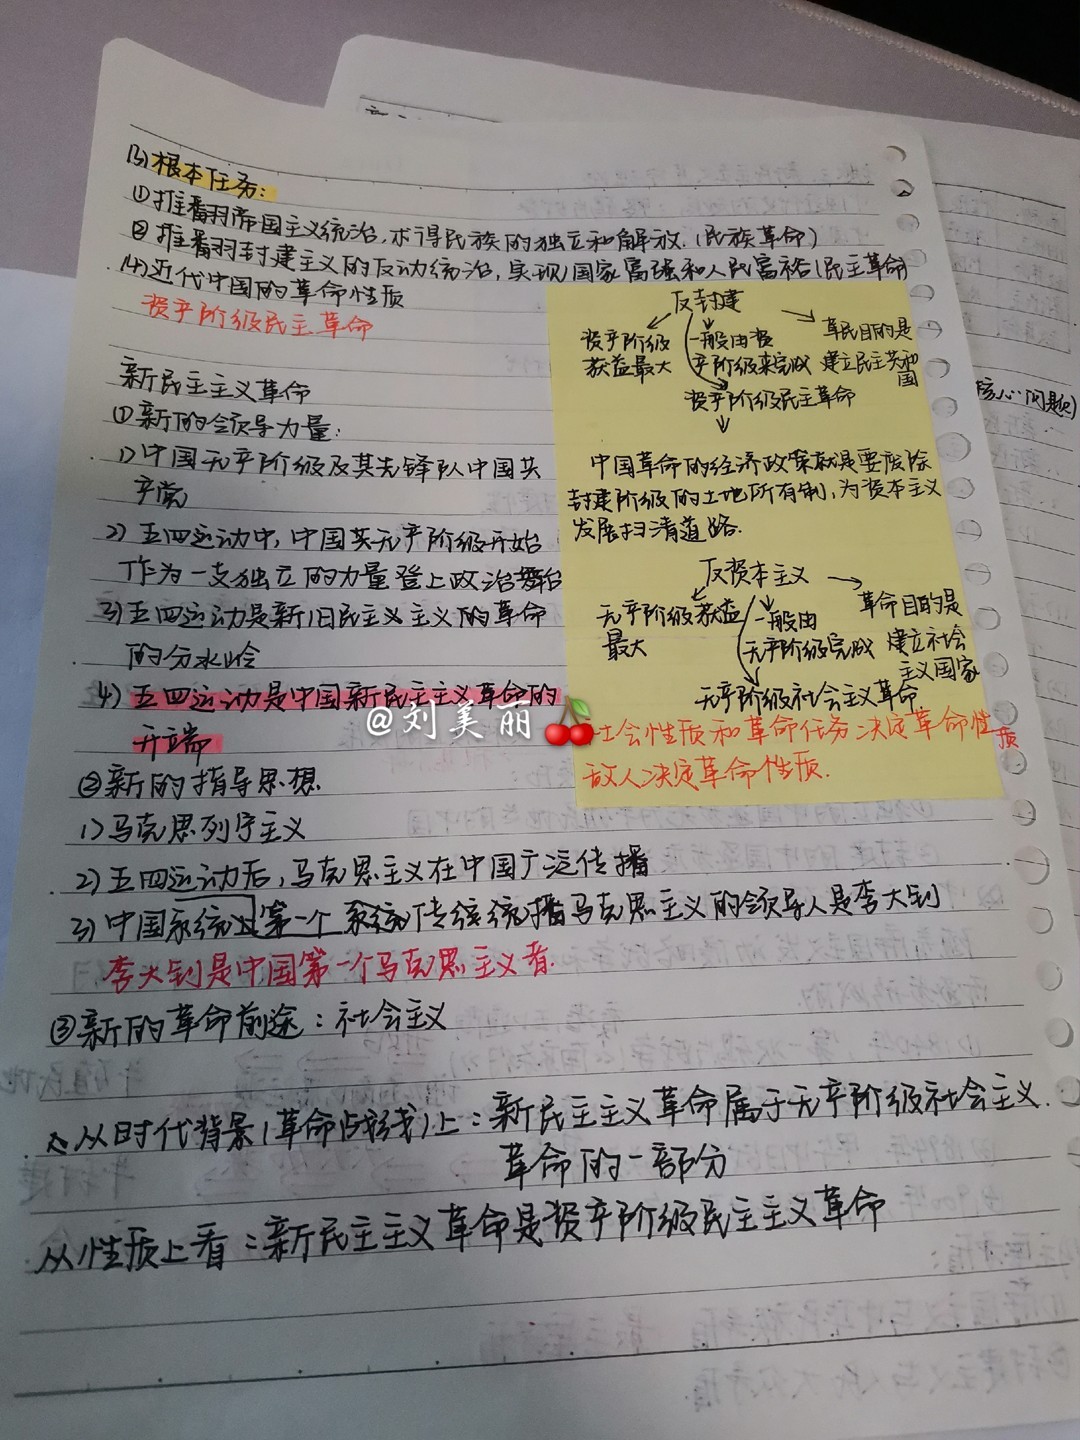 (3)根本任务:
①推翻帝国主义统治,求得民族的独立和解放.(民族革命)
②推翻封建主义的反动统治,实现国家富强和人民富裕(民主革命)
(4)近代中国的革命性质
资产阶级民主革命
新民主主义革命
①新的领导力量:
1)中国无产阶级及其先锋队中国共
产党
2)五四运动中,中国共无产阶级开始
作为一支独立的力量登上政治舞台
3)五四运动是新旧民主义主义的革命
的分水岭
4)五四运动是中国新民主主义革命的
开端
②新的指导思想
1)马克思列宁主义
2)五四运动后,马克思主义在中国广泛传播
3)中国系统 第一个系统传 统播马克思主义的领导人是李大钊
李大钊是中国第一个马克思主义者.
③新的革命前途:社会主义
从时代背景(革命战线)上:新民主主义革命属于无产阶级社会主义
革命的一部分
从性质上看:新民主主义革命是资产阶级民主主义革命
反封建
资产阶级
获益最大
一般由资
产阶级来完成
革民目的是
建立民主共和
国
资产阶级民主革命
中国革命的经济政策就是要废除
封建阶级的土地所有制,为资本主义
发展扫清道路.
反资本主义
无产阶级获益
最大
一般由
无产阶级完成
革命目的是
建立社会
主义国家
无产阶级社会主义革命
社会性质和革命任务决定革命性
质
敌人决定革命性质.
核心问题)
@刘美丽🍒